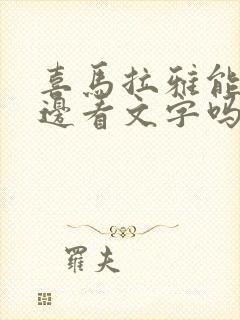 喜馬拉雅能
邊看文字嗎
羅夫